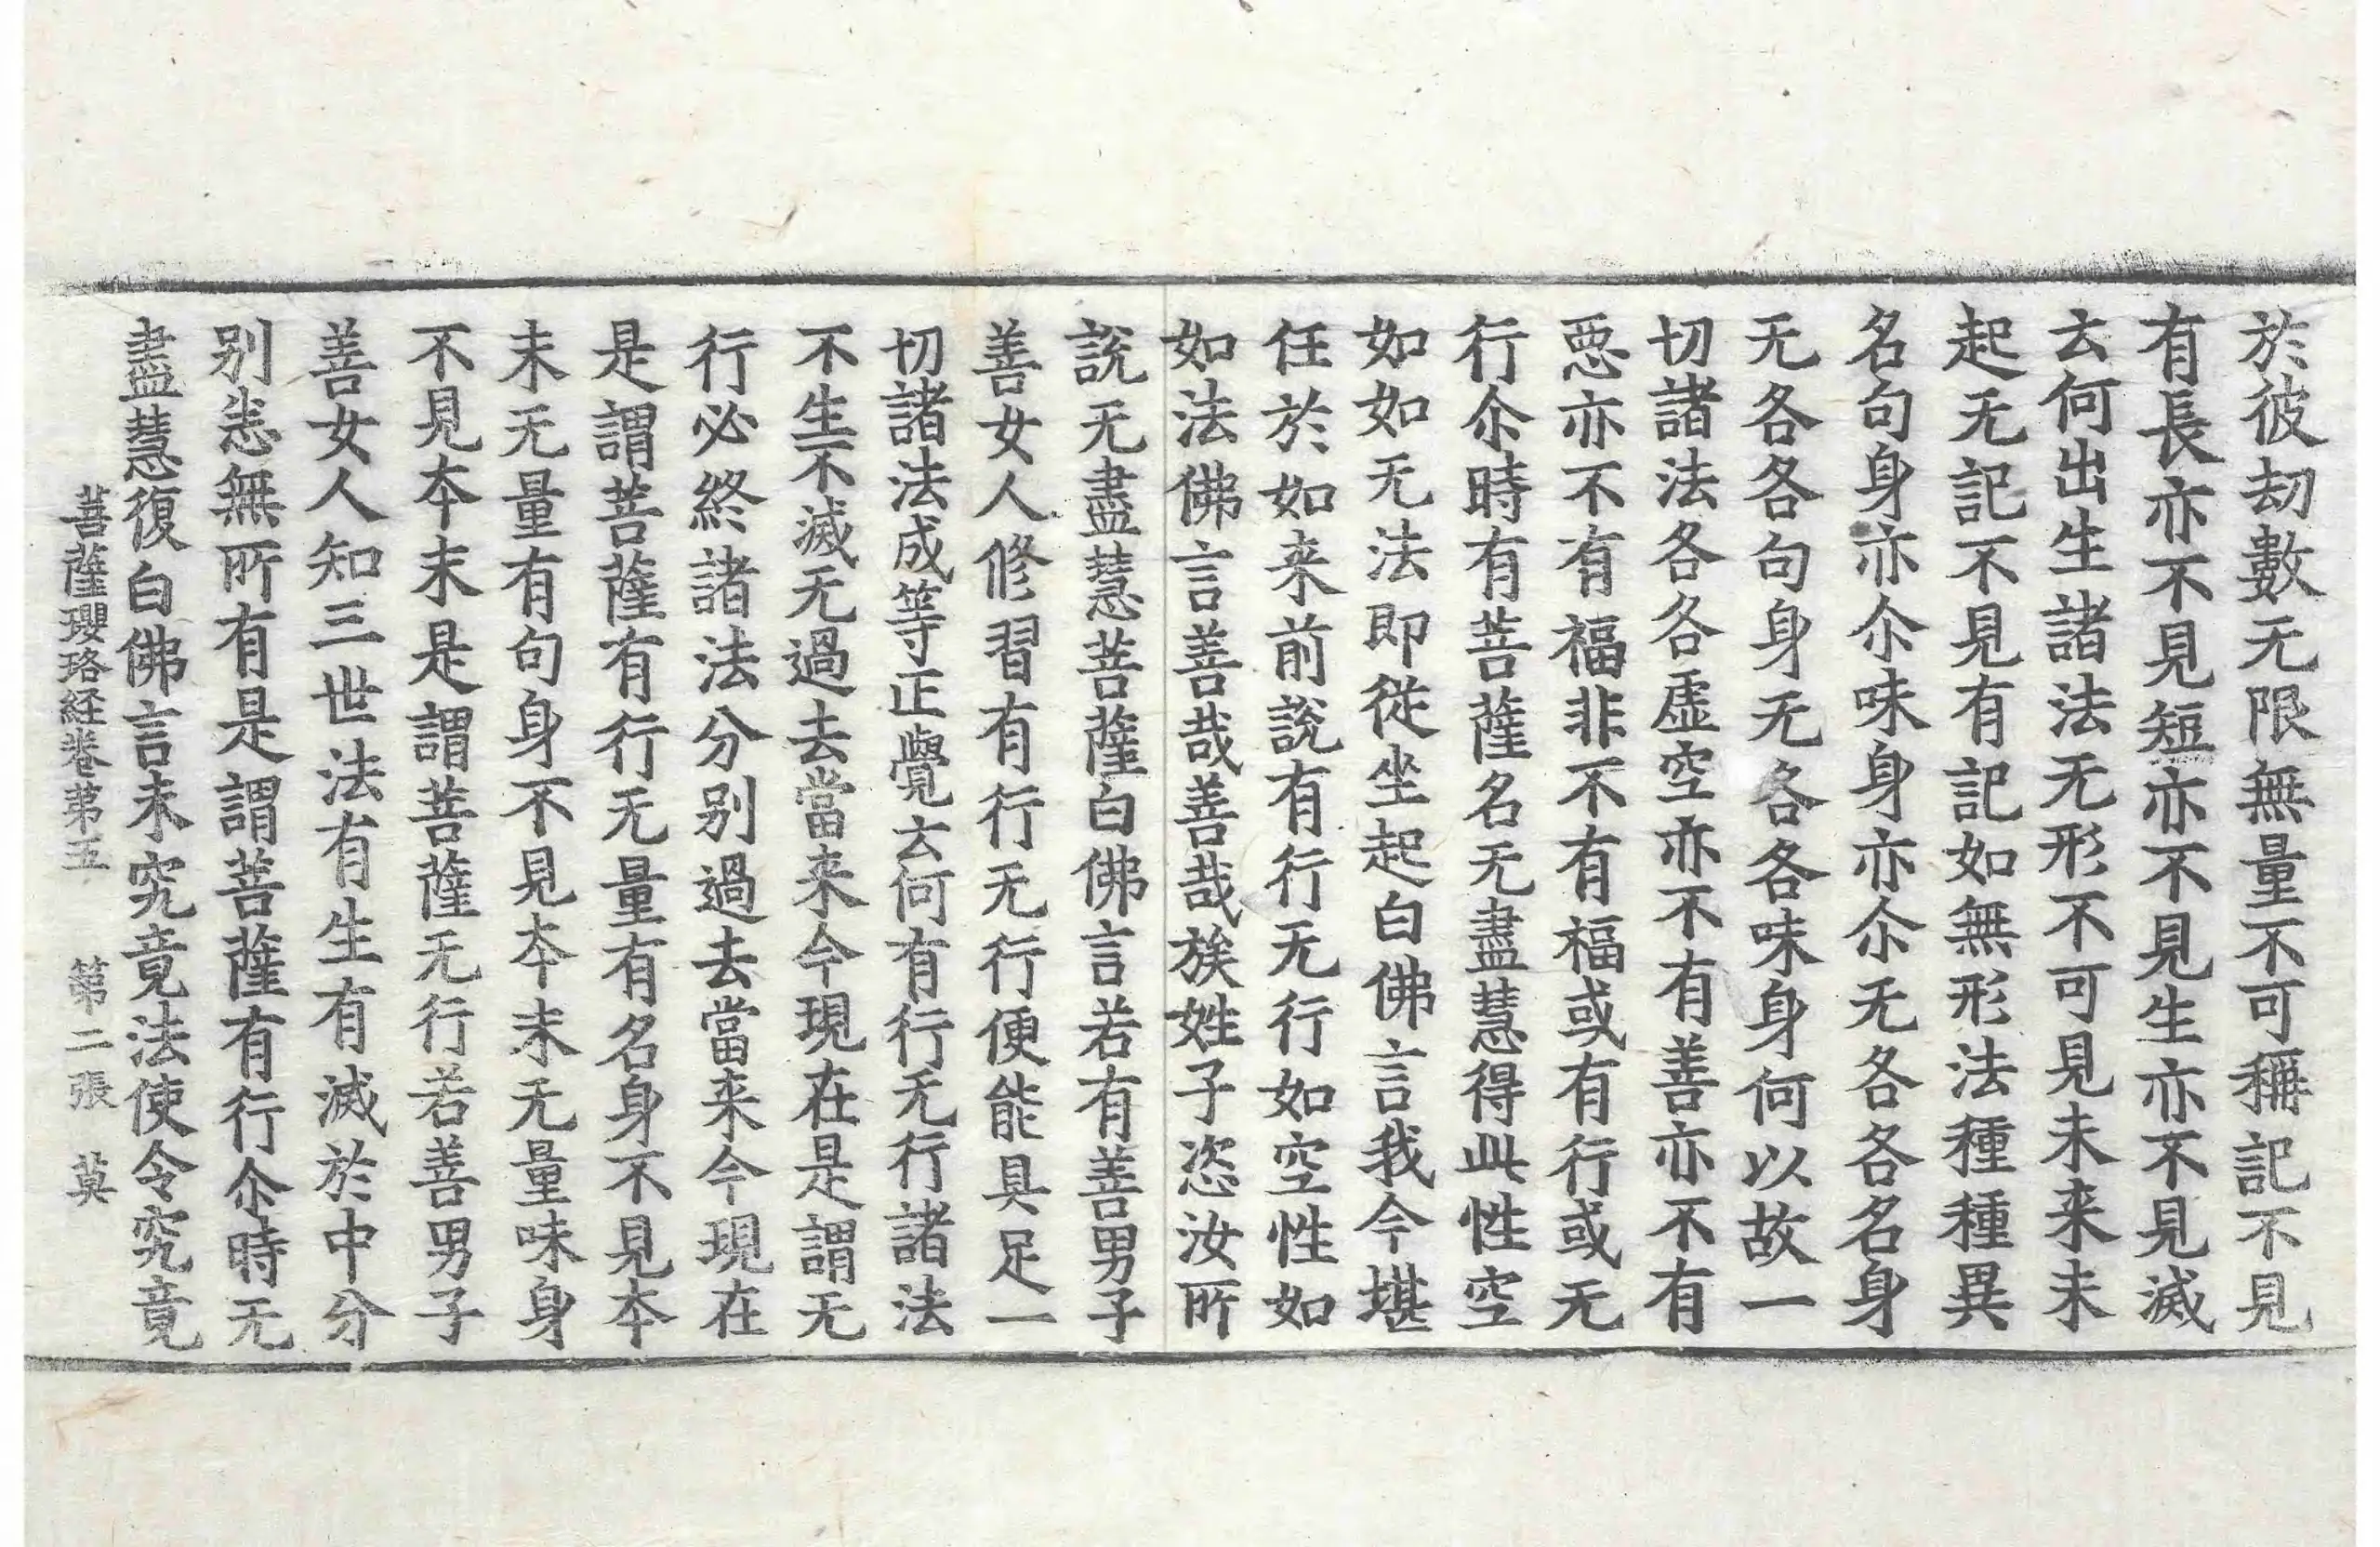 於彼劫數无限無量不可稱記不見
有長亦不見短亦不見生亦不見滅
云何出生諸法无形不可見未来未
起无記不見有記如無形法種種異
名句身亦尒味身亦尒无各各名身
无各各句身无各各味身何以故一
切諸法各各虛空亦不有善亦不有
惡亦不有福非不有福或有行或无
行尒時有菩薩名无盡慧得此性空
如如无法即從坐起白佛言我今堪
任於如来前說有行无行如空性如
如法佛言善哉善哉族姓子恣汝所
說无盡慧菩薩白佛言若有善男子
善女人修習有行无行便能具足一
切諸法成等正覺云何有行无行諸法
不生不滅无過去當来今現在是謂无
行必終諸法分别過去當来今現在
是謂菩薩有行无量有名身不見本
末无量有句身不見本末无量味身
不見本末是謂菩薩无行若善男子
善女人知三世法有生有滅於中分
别恙無所有是謂菩薩有行尒時无
盡慧復白佛言未究竟法使令究竟
菩薩瓔珞経卷苐五 第二張 莫